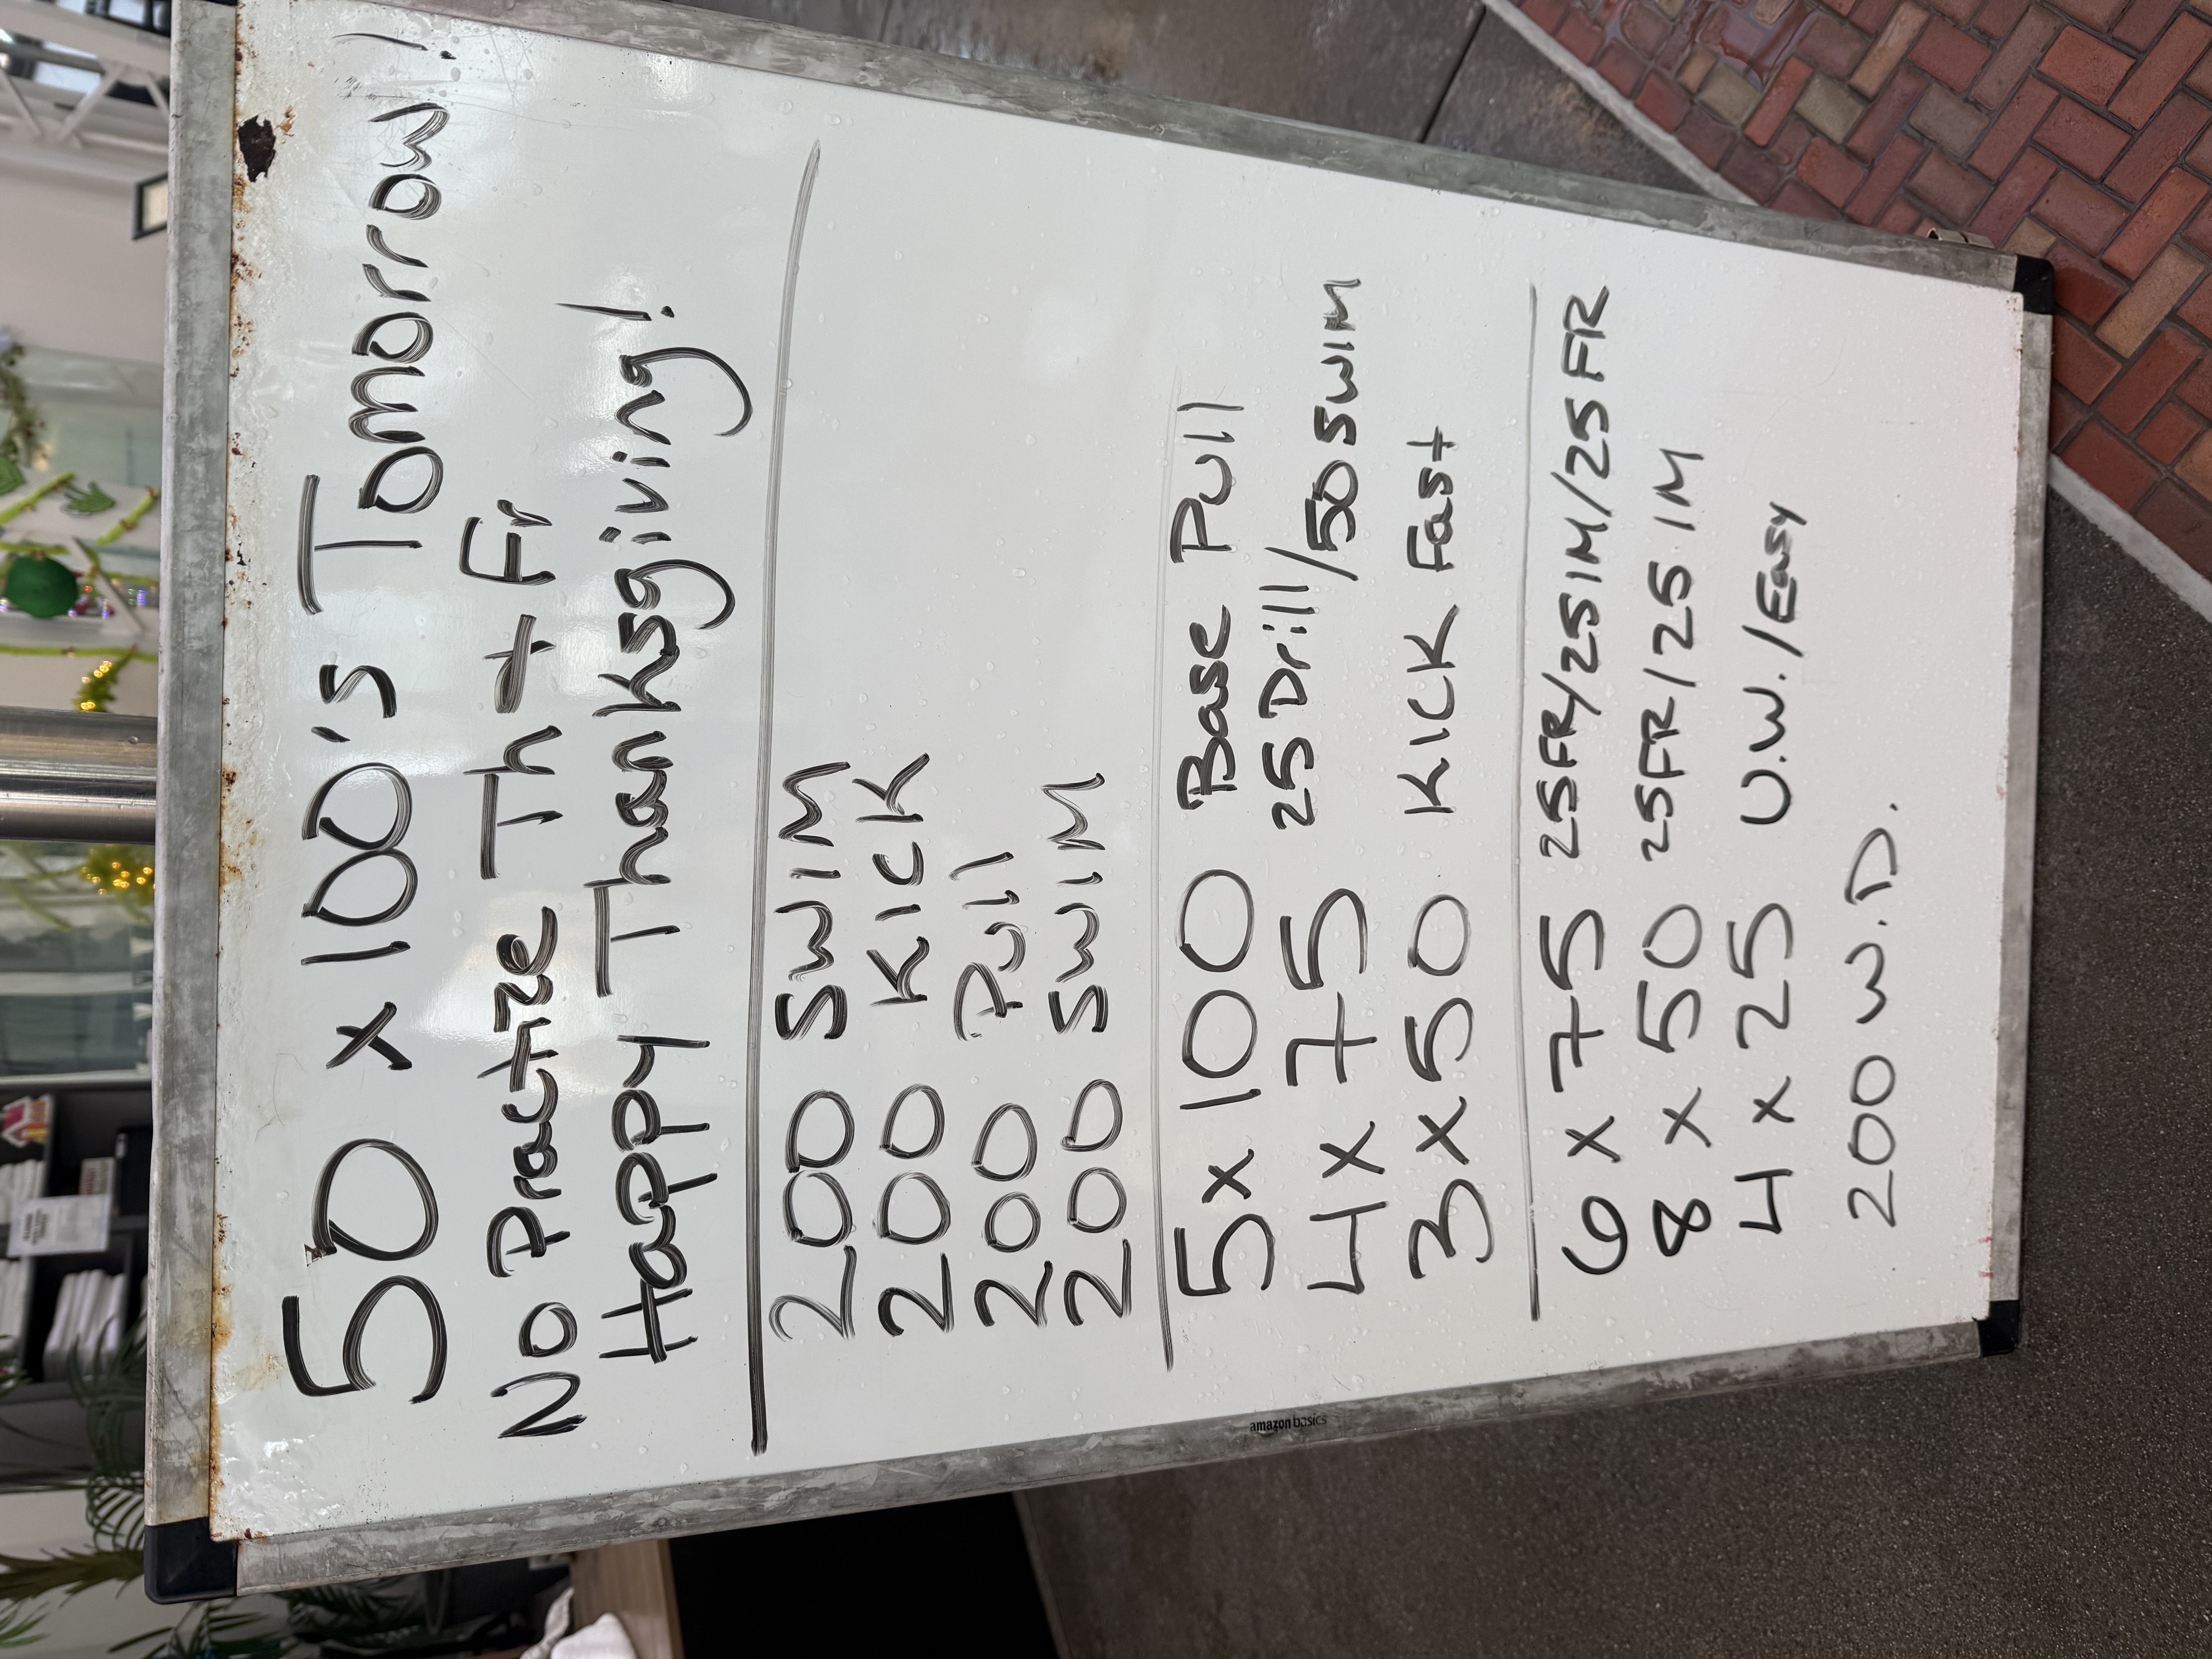 50 x 100's Tomorrow!
No Practize Th + Fr
Happy Thanksgiving!
200 SWIM
200 KICK
200 Pull
200 SWIM
5 x 100 Base Pull
4 x 75 25 Drill/50 SWIM
3 x 50 KICK Fast
6 x 75 25FR/25IM/25FR
8 x 50 25FR/25 IM
4 x 25 U.W./Easy
200 W.D.
amazon basics